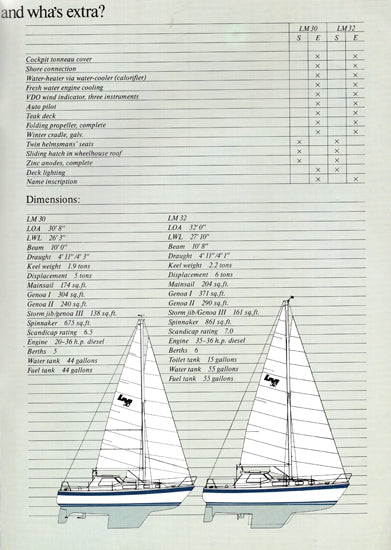 and wha's extra?
LM 30 LM 32
S E S E
Cockpit tonneau cover × ×
Shore connection × ×
Water-heater via water-cooler (calorifier) × ×
Fresh water engine cooling × ×
VDO wind indicator, three instruments × ×
Auto pilot × ×
Teak deck × ×
Folding propeller, complete × ×
Winter cradle, galv. × ×
Twin helmsmans' seats × ×
Sliding hatch in wheelhouse roof × ×
Zinc anodes, complete × ×
Deck lighting × ×
Name inscription × ×
Dimensions:
LM 30
LOA 30' 8"
LWL 26' 3"
Beam 10' 0"
Draught 4' 11"/4' 3"
Keel weight 1.9 tons
Displacement 5 tons
Mainsail 174 sq.ft.
Genoa I 304 sq.ft.
Genoa II 240 sq.ft.
Storm jib/genoa III 138 sq.ft.
Spinnaker 675 sq.ft.
Scandicap rating 6.5
Engine 20–36 h.p. diesel
Berths 5
Water tank 44 gallons
Fuel tank 44 gallons
LM 32
LOA 32' 0"
LWL 27' 10"
Beam 10' 8"
Draught 4' 11"/4' 1"
Keel weight 2.2 tons
Displacement 6 tons
Mainsail 204 sq.ft.
Genoa I 371 sq.ft.
Genoa II 290 sq.ft.
Storm jib/Genoa III 161 sq.ft.
Spinnaker 861 sq.ft.
Scandicap rating 7.0
Engine 35–36 h.p. diesel
Berths 6
Toilet tank 15 gallons
Water tank 55 gallons
Fuel tank 55 gallons